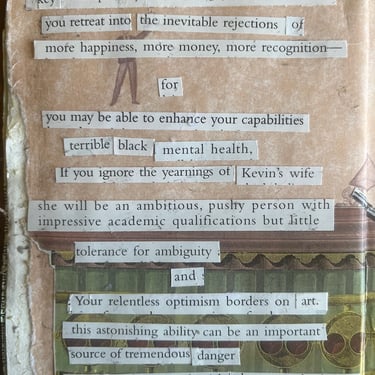 key
you retreat into the inevitable rejections of
more happiness, more money, more recognition—
for
you may be able to enhance your capabilities
terrible black mental health,
If you ignore the yearnings of Kevin's wife
she will be an ambitious, pushy person with
impressive academic qualifications but little
tolerance for ambiguity
and
Your relentless optimism borders on art.
this astonishing ability can be an important
source of tremendous danger